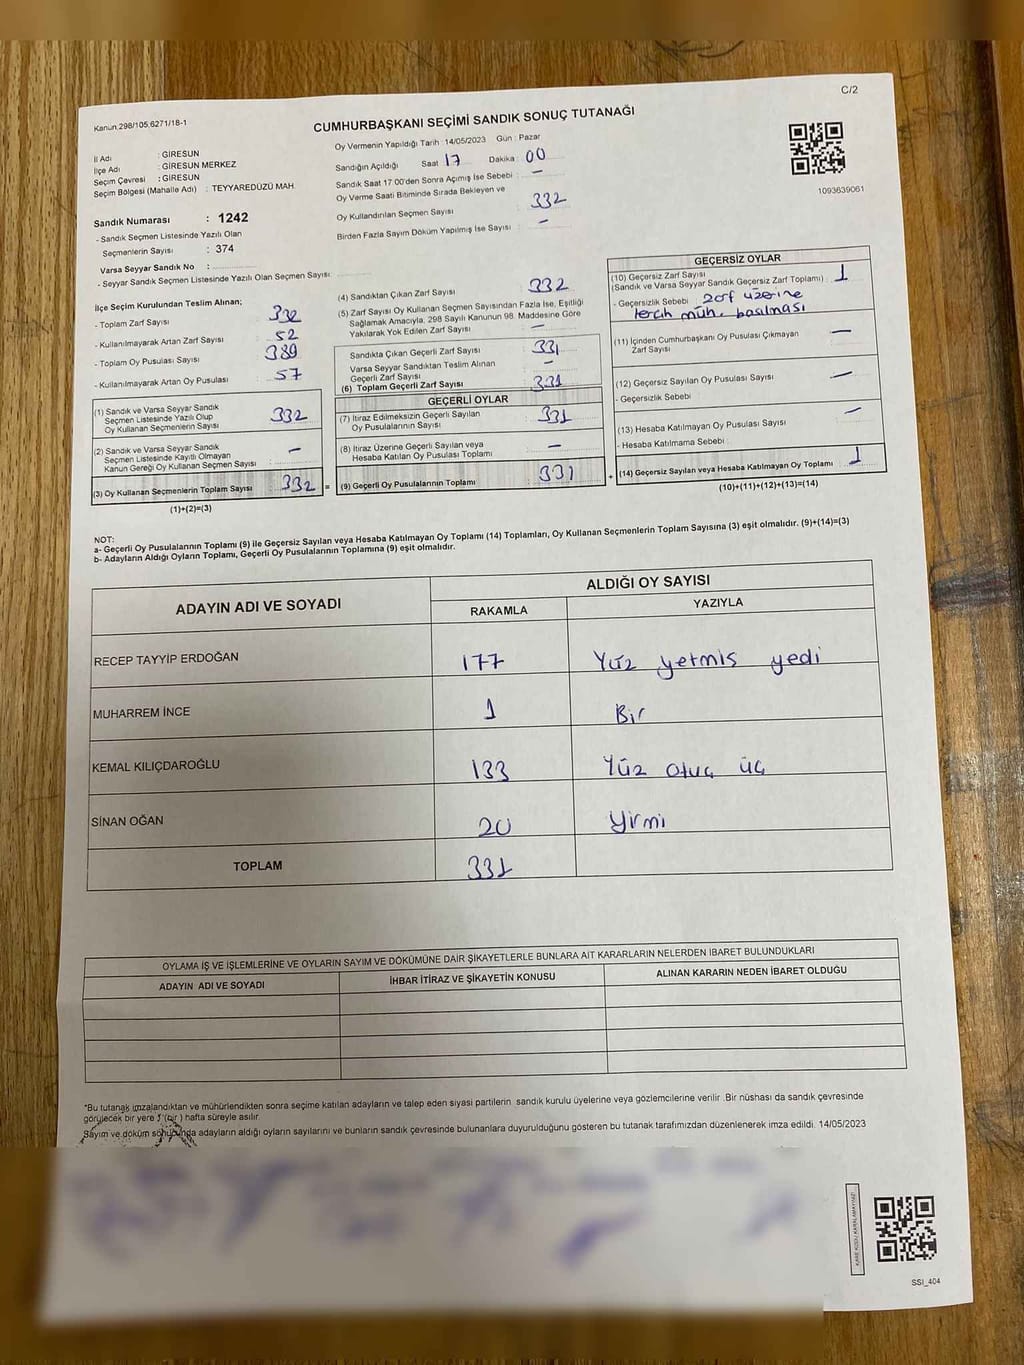 C/2
Kanun.298/105,6271/18-1
CUMHURBAŞKANI SEÇİMİ SANDIK SONUÇ TUTANAĞI
İl Adı : GİRESUN
İlçe Adı : GİRESUN MERKEZ
Seçim Çevresi : GİRESUN
Seçim Bölgesi (Mahalle Adı) : TEYYAREDÜZÜ MAH.
Sandık Numarası : 1242
- Sandık Seçmen Listesinde Yazılı Olan
Seçmenlerin Sayısı : 374
Varsa Seyyar Sandık No :
- Seyyar Sandık Seçmen Listesinde Yazılı Olan Seçmen Sayısı:
Oy Vermenin Yapıldığı Tarih : 14/05/2023 Gün : Pazar
Sandığın Açıldığı Saat : 17 Dakika : 00
Sandık Saat 17:00'den Sonra Açılmış İse Sebebi : -
Oy Verme Saati Bitiminde Sırada Bekleyen ve
Oy Kullandırılan Seçmen Sayısı 332
Birden Fazla Sayım Döküm Yapılmış İse Sayısı : -
1093639061
İlçe Seçim Kurulundan Teslim Alınan;
- Toplam Zarf Sayısı : 332
- Kullanılmayarak Artan Zarf Sayısı : 52
- Toplam Oy Pusulası Sayısı : 389
- Kullanılmayarak Artan Oy Pusulası : 57
(1) Sandık ve Varsa Seyyar Sandık
Seçmen Listesinde Yazılı Olup
Oy Kullanan Seçmenlerin Sayısı : 332
(2) Sandık ve Varsa Seyyar Sandık
Seçmen Listesinde Kayıtlı Olmayan
Kanun Gereği Oy Kullanan Seçmen Sayısı : -
(3) Oy Kullanan Seçmenlerin Toplam Sayısı : 332 =
(1)+(2)=(3)
(4) Sandıktan Çıkan Zarf Sayısı : 332
(5) Zarf Sayısı Oy Kullanan Seçmen Sayısından Fazla İse, Eşitliği
Sağlamak Amacıyla, 298 Sayılı Kanunun 98. Maddesine Göre
Yakılarak Yok Edilen Zarf Sayısı : -
Sandıkta Çıkan Geçerli Zarf Sayısı : 331
Varsa Seyyar Sandıktan Teslim Alınan
Geçerli Zarf Sayısı : -
(6) Toplam Geçerli Zarf Sayısı : 331
GEÇERLİ OYLAR
(7) İtiraz Edilmeksizin Geçerli Sayılan
Oy Pusulalarının Sayısı : 331
(8) İtiraz Üzerine Geçerli Sayılan veya
Hesaba Katılan Oy Pusulası Toplamı : -
(9) Geçerli Oy Pusulalarının Toplamı : 331 +
GEÇERSİZ OYLAR
(10) Geçersiz Zarf Sayısı
(Sandık ve Varsa Seyyar Sandık Geçersiz Zarf Toplamı) : 1
- Geçersizlik Sebebi : zarf üzerine
tercih müh. basılması
(11) İçinden Cumhurbaşkanı Oy Pusulası Çıkmayan
Zarf Sayısı : -
(12) Geçersiz Sayılan Oy Pusulası Sayısı : -
- Geçersizlik Sebebi :
(13) Hesaba Katılmayan Oy Pusulası Sayısı : -
- Hesaba Katılmama Sebebi :
(14) Geçersiz Sayılan veya Hesaba Katılmayan Oy Toplamı : 1
(10)+(11)+(12)+(13)=(14)
NOT:
a- Geçerli Oy Pusulalarının Toplamı (9) ile Geçersiz Sayılan veya Hesaba Katılmayan Oy Toplamı (14) Toplamları, Oy Kullanan Seçmenlerin Toplam Sayısına (3) eşit olmalıdır. (9)+(14)=(3)
b- Adayların Aldığı Oyların Toplamı, Geçerli Oy Pusulalarının Toplamına (9) eşit olmalıdır.
ADAYIN ADI VE SOYADI ALDIĞI OY SAYISI
RAKAMLA YAZIYLA
RECEP TAYYİP ERDOĞAN 177 Yüz yetmis yedi
MUHARREM İNCE 1 Bir
KEMAL KILIÇDAROĞLU 133 Yüz otuz üç
SİNAN OĞAN 20 Yirmi
TOPLAM 331
OYLAMA İŞ VE İŞLEMLERİNE VE OYLARIN SAYIM VE DÖKÜMÜNE DAİR ŞİKAYETLERLE BUNLARA AİT KARARLARIN NELERDEN İBARET BULUNDUKLARI
ADAYIN ADI VE SOYADI İHBAR İTİRAZ VE ŞİKAYETİN KONUSU ALINAN KARARIN NEDEN İBARET OLDUĞU
*Bu tutanak imzalandıktan ve mühürlendikten sonra seçime katılan adayların ve talep eden siyasi partilerin sandık kurulu üyelerine veya gözlemcilerine verilir. Bir nüshası da sandık çevresinde
görülecek bir yere 1 (bir ) hafta süreyle asılır.
Sayım ve döküm sonucunda adayların aldığı oyların sayılarını ve bunların sandık çevresinde bulunanlara duyurulduğunu gösteren bu tutanak tarafımızdan düzenlenerek imza edildi. 14/05/2023
SSI_404